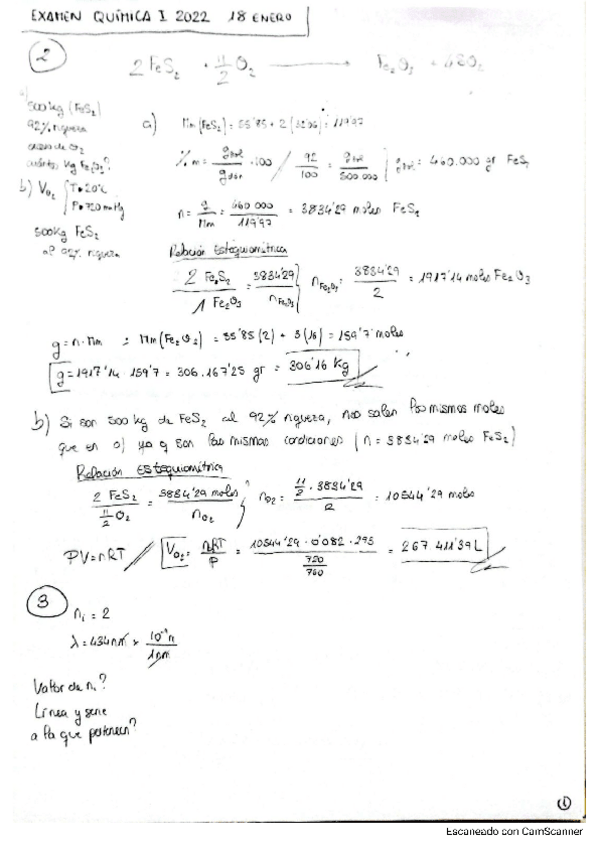 EXAMEN QUÍMICA I 2022 18 ENERO
2
2 FeS₂ + 11/2 O₂ → Fe₂O₃ + 4SO₂
a)
500kg (FeS₂)
92% riqueza
exceso de O₂
cuántos Kg Fe₂O₃?
b) V O₂ { T=20ºC
P=720 mmHg
500Kg FeS₂
al 92% riqueza
a) Mm(FeS₂) = 55'85 + 2(32'06) = 119'97
% m = g sol / g dón · 100 / 92/100 = g sol / 500.000 | g sol = 460.000 gr FeS₂
n = g/Mm = 460 000 / 119'97 = 3834'29 moles FeS₂
Relación Estequiométrica
2 FeS₂ / 1 Fe₂O₃ = 3834'29 / n Fe₂O₃ } n Fe₂O₃ = 3834'29 / 2 = 1917'14 moles Fe₂O₃
g = n·Mm ; Mm(Fe₂O₃) = 55'85(2) + 3(16) = 159'7 moles
g = 1917'14 · 159'7 = 306.167'25 gr = 306'16 Kg
b) Si son 500 kg de FeS₂ al 92% riqueza, nos salen los mismos moles
que en a) ya q son las mismas condiciones (n = 3834'29 moles FeS₂)
Relación Estequiométrica
2 FeS₂ / 11/2 O₂ = 3834'29 moles / n O₂ } n O₂ = 11/2 · 3834'29 / 2 = 10544'29 moles
PV=nRT // V O₂ = nRT/P = 10544'29 · 0'082 · 293 / 720/760 = 267 411'39 L
3
nᵢ = 2
λ = 434nm × 10⁻⁹m / 1nm
Valor de n?
Línea y serie
a la que pertenecen?
1
Escaneado con CamScanner